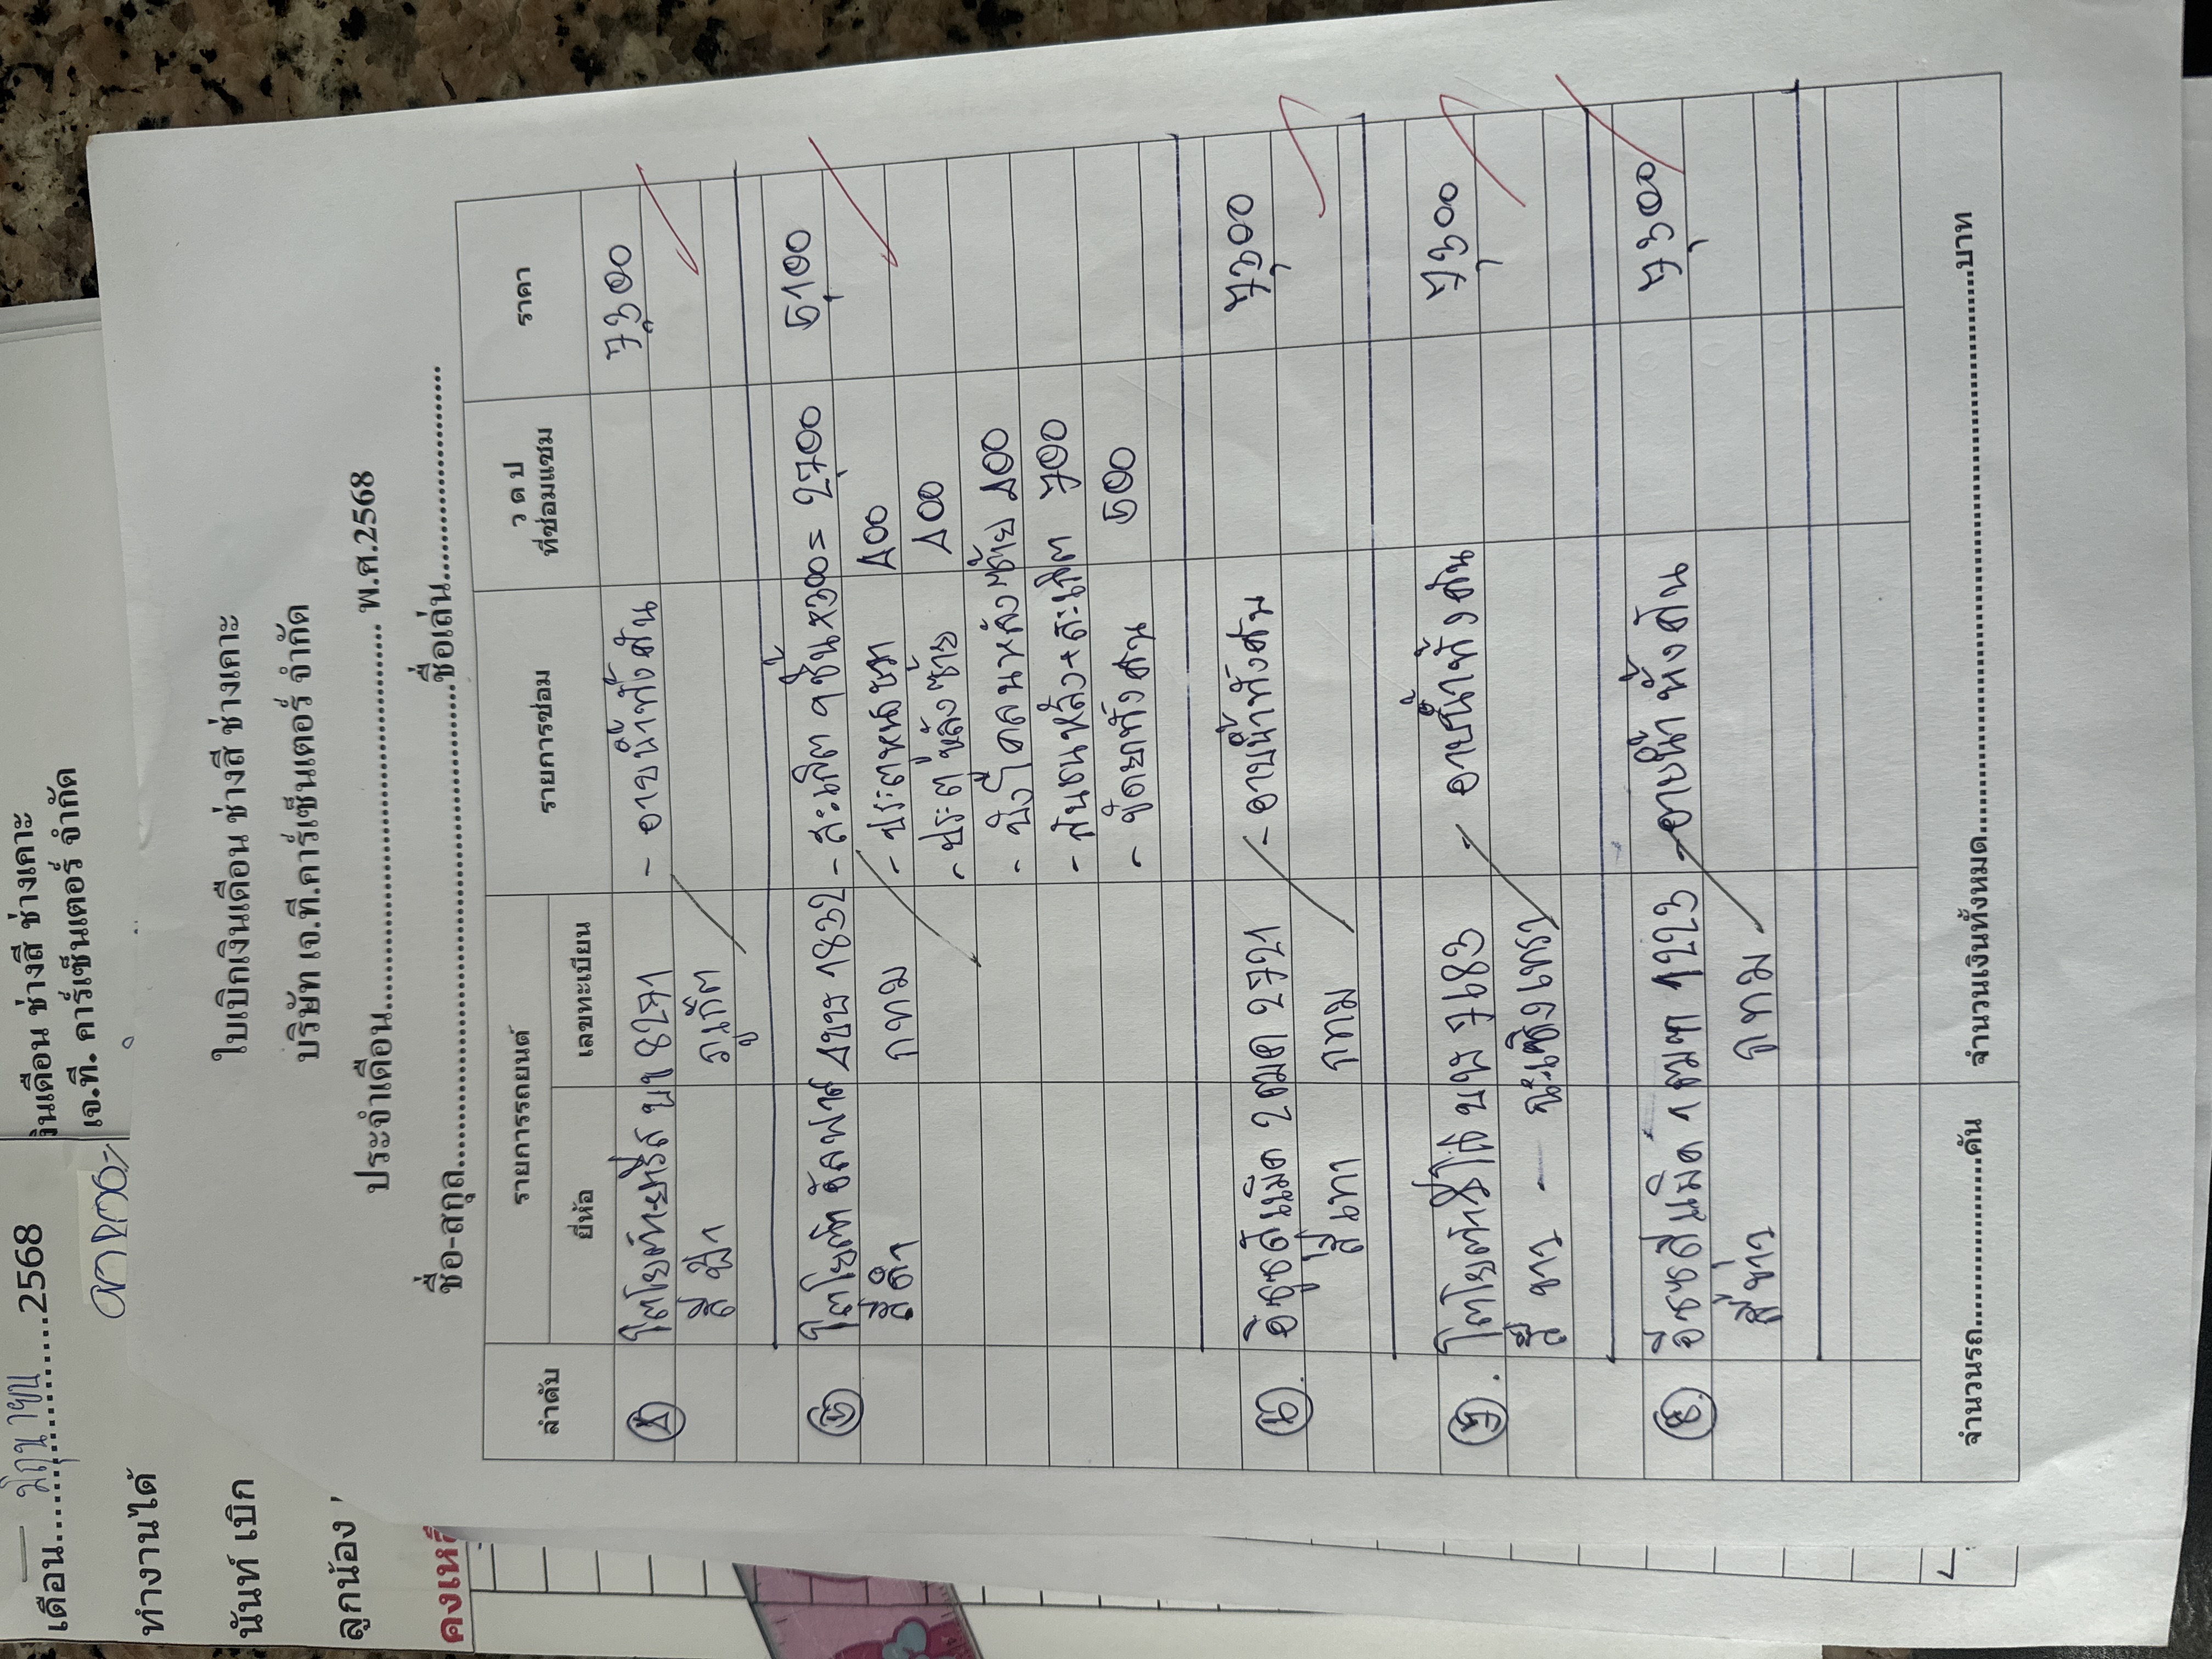 เดือน.....มิถุนายน.....2568
ทำงานได้
นันท์ เบิก
ลูกน้อง
คงเหลื
งินเดือน ช่างสี ช่างเคาะ
เจ.ที. คาร์เซ็นเตอร์ จำกัด
ใบเบิกเงินเดือน ช่างสี ช่างเคาะ
บริษัท เจ.ที.คาร์เซ็นเตอร์ จำกัด
ประจำเดือน.................................... พ.ศ.2568
ชื่อ-สกุล..................................................ชื่อเล่น.........................
ลำดับ รายการรถยนต์ รายการซ่อม ว ด ป ที่ซ่อมแซม ราคา
ยี่ห้อ เลขทะเบียน
4 โตโยต้ายาริส บข 8271 - อาบน้ำทั้งคัน 7,300
สีฟ้า ภูเก็ต
5 โตโยต้าอัลพาร์ด 4ขข 1832 - สะเก็ต 9ชิ้น×300= 2,700 5,100
สีดำ กทม - ประตูหน้าขวา 400
- ประตูหลังซ้าย 400
- บังโคลนหลังซ้าย 400
- กันชนหลัง+สะเก็ต 700
- ขัดยาทั้งคัน 500
6. อีซูซุสีเม็ด 2ฒค 2721 - อาบน้ำทั้งคัน 7,300
สีเทา กทม
7. โตโยต้ารีโว้ บน 7683 - อาบน้ำทั้งคัน 7,300
สีขาว - ฉะเชิงเทรา
8. อีซูซุสีเม็ด 1ฒฆ 1223 - อาบน้ำทั้งคัน 7,300
สีขาว กทม
จำนวนรถ....................คัน จำนวนเงินทั้งหมด..................................................................บาท